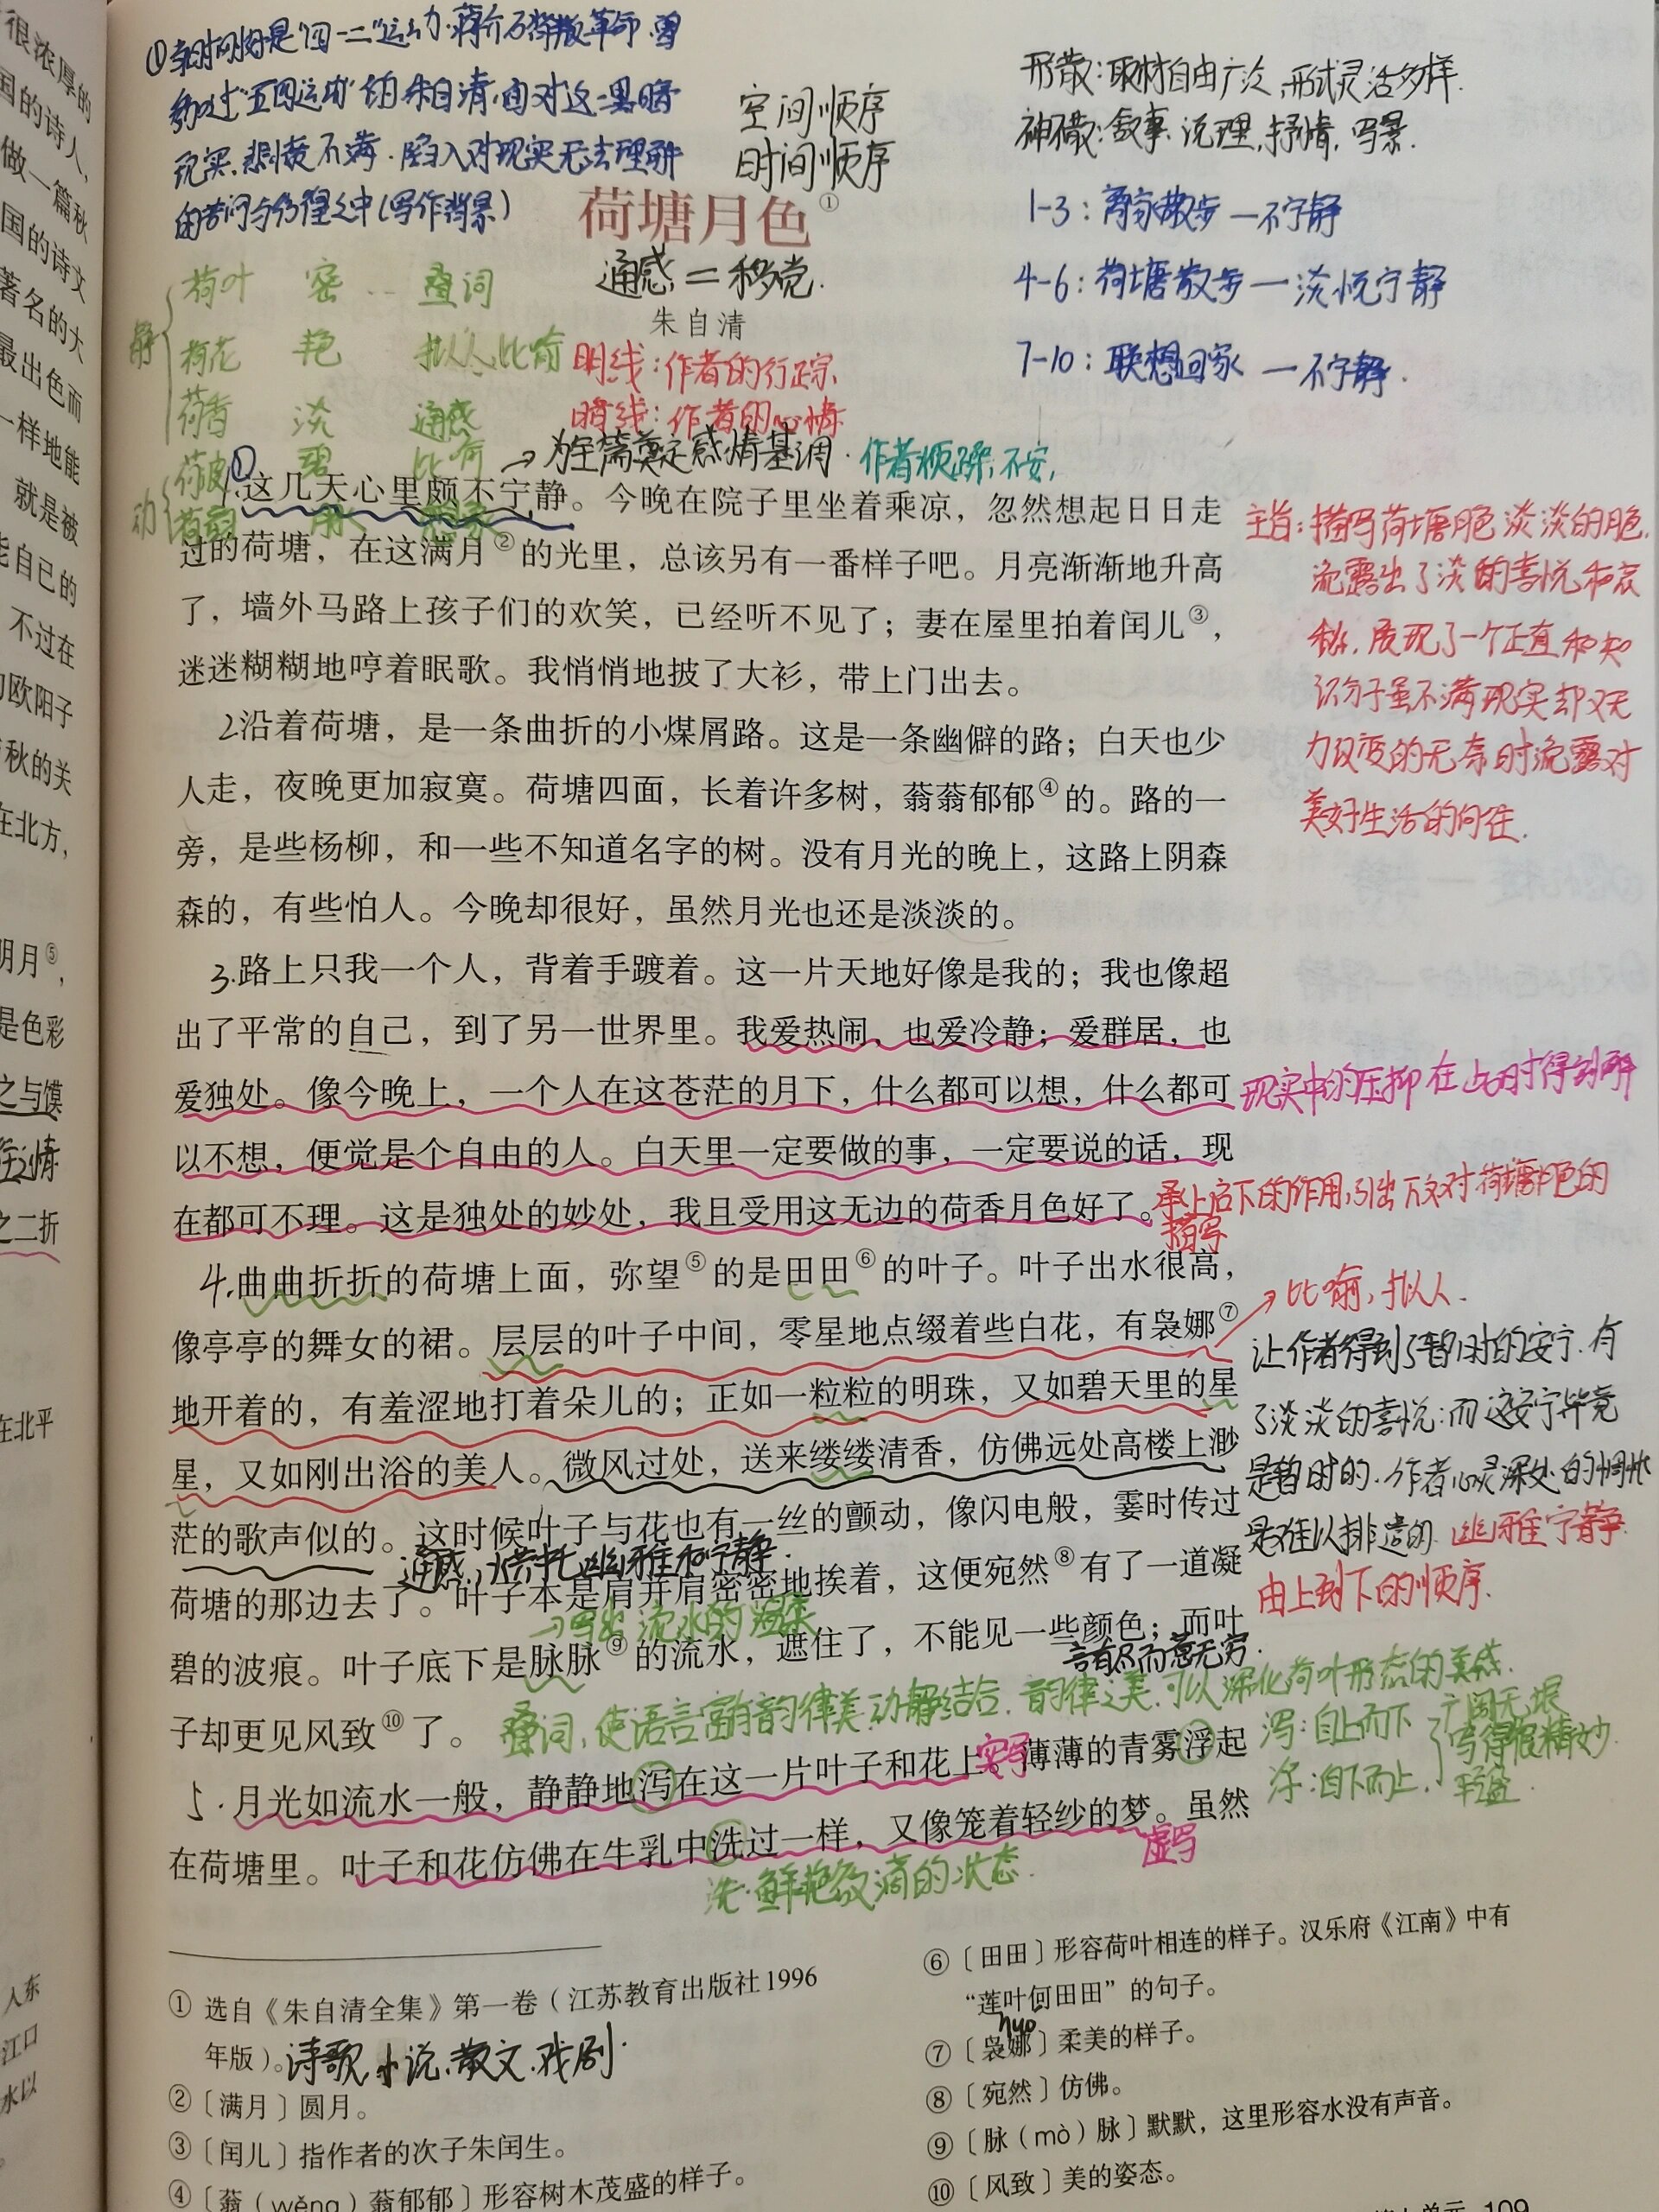 很浓厚的
国的诗人，
做一篇秋
国的诗文
著名的大
最出色而
一样地能
就是被
能自已的
不过在
欧阳子
秋的关
在北方，
明月⑤，
是色彩
之与馍
之二折
在北平
人东
江口
水以
①当时刚好是"四一二"运动.蒋介石背叛革命.曾
参加过"五四运动"的朱自清,面对这一黑暗
现实.悲愤不满.陷入对现实无法理解
的苦闷与彷徨之中(写作背景)
空间顺序
时间顺序
形散:取材自由广泛,形式灵活多样.
神不散:叙事.说理,抒情,写景.
1-3:离家散步—不宁静
4-6:荷塘散步—淡悦宁静
7-10:联想回家—不宁静.
荷塘月色①
通感=移觉.
朱自清
静
荷叶 密 叠词
荷花 艳 拟人,比喻
荷香 淡 通感
动
荷波 碧 比喻
荷韵
明线:作者的行踪
暗线:作者的心情
→为全篇奠定感情基调.作者烦躁,不安,
1.这几天心里颇不宁静。今晚在院子里坐着乘凉，忽然想起日日走
过的荷塘，在这满月②的光里，总该另有一番样子吧。月亮渐渐地升高
了，墙外马路上孩子们的欢笑，已经听不见了；妻在屋里拍着闰儿③，
迷迷糊糊地哼着眠歌。我悄悄地披了大衫，带上门出去。
主旨:描写荷塘月色淡淡的月色,
流露出了淡的喜悦和哀
愁,展现了一个正直和知
识分子虽不满现实却又无
力改变的无奈时流露对
美好生活的向往.
2沿着荷塘，是一条曲折的小煤屑路。这是一条幽僻的路；白天也少
人走，夜晚更加寂寞。荷塘四面，长着许多树，蓊蓊郁郁④的。路的一
旁，是些杨柳，和一些不知道名字的树。没有月光的晚上，这路上阴森
森的，有些怕人。今晚却很好，虽然月光也还是淡淡的。
3.路上只我一个人，背着手踱着。这一片天地好像是我的；我也像超
出了平常的自己，到了另一世界里。我爱热闹，也爱冷静；爱群居，也
爱独处。像今晚上，一个人在这苍茫的月下，什么都可以想，什么都可
以不想，便觉是个自由的人。白天里一定要做的事，一定要说的话，现
在都可不理。这是独处的妙处，我且受用这无边的荷香月色好了。
现实中的压抑在此时得到解
承上启下的作用,引出下文对荷塘月色的
描写
4.曲曲折折的荷塘上面，弥望⑤的是田田⑥的叶子。叶子出水很高，
像亭亭的舞女的裙。层层的叶子中间，零星地点缀着些白花，有袅娜⑦
地开着的，有羞涩地打着朵儿的；正如一粒粒的明珠，又如碧天里的星
星，又如刚出浴的美人。微风过处，送来缕缕清香，仿佛远处高楼上渺
茫的歌声似的。这时候叶子与花也有一丝的颤动，像闪电般，霎时传过
荷塘的那边去了。叶子本是肩并肩密密地挨着，这便宛然⑧有了一道凝
碧的波痕。叶子底下是脉脉⑨的流水，遮住了，不能见一些颜色；而叶
子却更见风致⑩了。
→比喻,拟人.
让作者得到了暂时的安宁.有
了淡淡的喜悦:而这安宁毕竟
是暂时的.作者心灵深处的惆怅
是难以排遣的.幽雅宁静
由上到下的顺序.
通感,烘托幽雅和宁静.
→写出流水的温柔
言有尽而意无穷.
叠词,使语言富有韵律美.动静结合.韵律之美.可以深化荷叶形态的美感.
5.月光如流水一般，静静地泻在这一片叶子和花上。薄薄的青雾浮起
在荷塘里。叶子和花仿佛在牛乳中洗过一样，又像笼着轻纱的梦。虽然
实写
虚写
洗.鲜艳欲滴的状态.
泻:自上而下
浮:自下而上.
写得很精妙.
① 选自《朱自清全集》第一卷（江苏教育出版社1996
年版）。诗歌.小说.散文.戏剧.
②〔满月〕圆月。
③〔闰儿〕指作者的次子朱闰生。
④〔蓊（wěng）蓊郁郁〕形容树木茂盛的样子。
⑥〔田田〕形容荷叶相连的样子。汉乐府《江南》中有
“莲叶何田田”的句子。
nuó
⑦〔袅娜〕柔美的样子。
⑧〔宛然〕仿佛。
⑨〔脉（mò）脉〕默默，这里形容水没有声音。
⑩〔风致〕美的姿态。
109